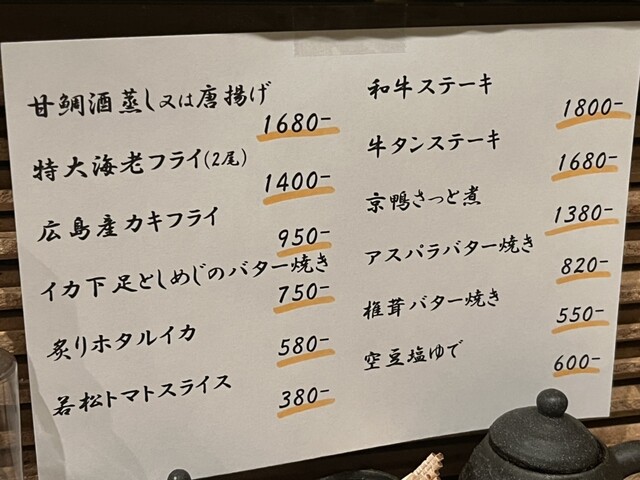 甘鯛酒蒸し又は唐揚げ
1680-
特大海老フライ(2尾)
1400-
広島産カキフライ
950-
イカ下足としめじのバター焼き
750-
炙りホタルイカ
580-
若松トマトスライス
380-
和牛ステーキ
1800-
牛タンステーキ
1680-
京鴨さっと煮
1380-
アスパラバター焼き
820-
椎茸バター焼き
550-
空豆塩ゆで
600-